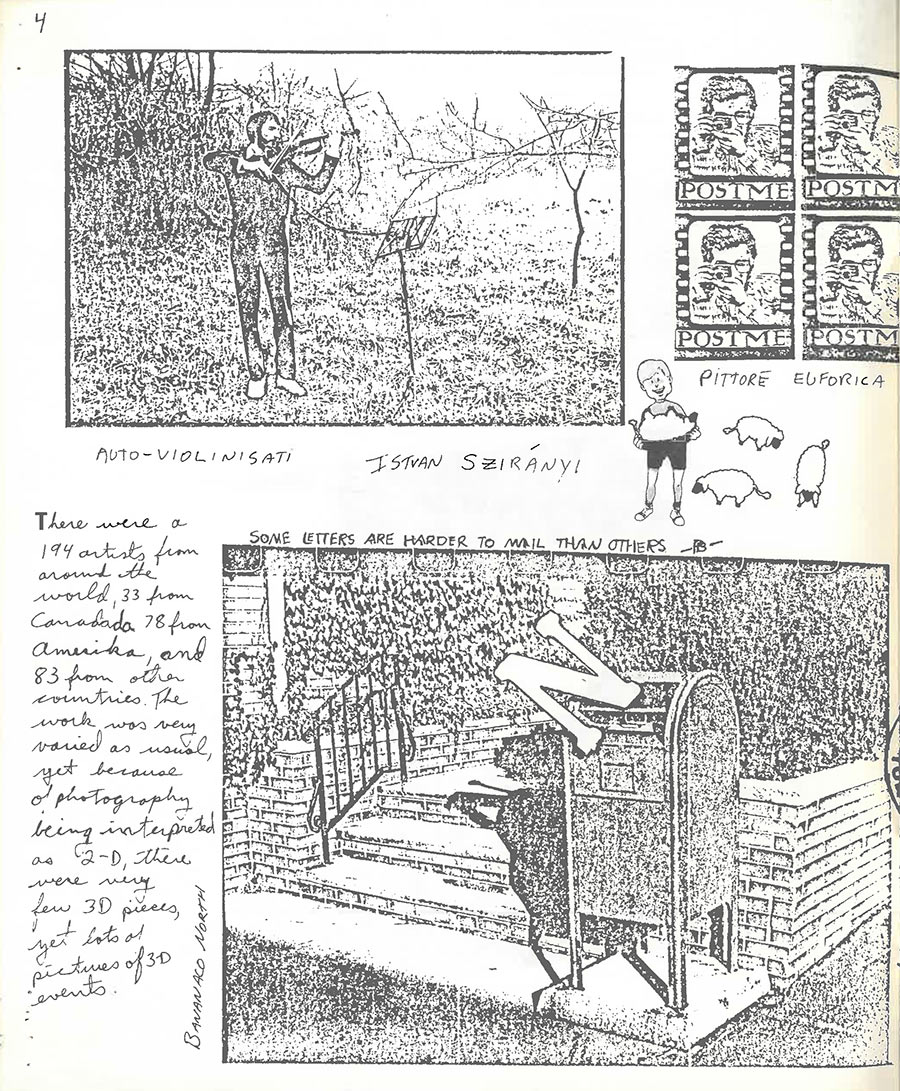 4
POSTME POSTM
POSTME POSTM
PITTORE EUFORICA
AUTO-VIOLINISATI
ISTVAN SZIRÁNYI
There were a
194 artists from
around the
world, 33 from
Canadada 78 from
Amerika, and
83 from other
countries. The
work was very
varied as usual,
yet because
of photography
being interpreted
as 2-D, there
were very
few 3D pieces,
yet lots of
pictures of 3D
events.
BANANACO NORTH
SOME LETTERS ARE HARDER TO MAIL THAN OTHERS -B-
N